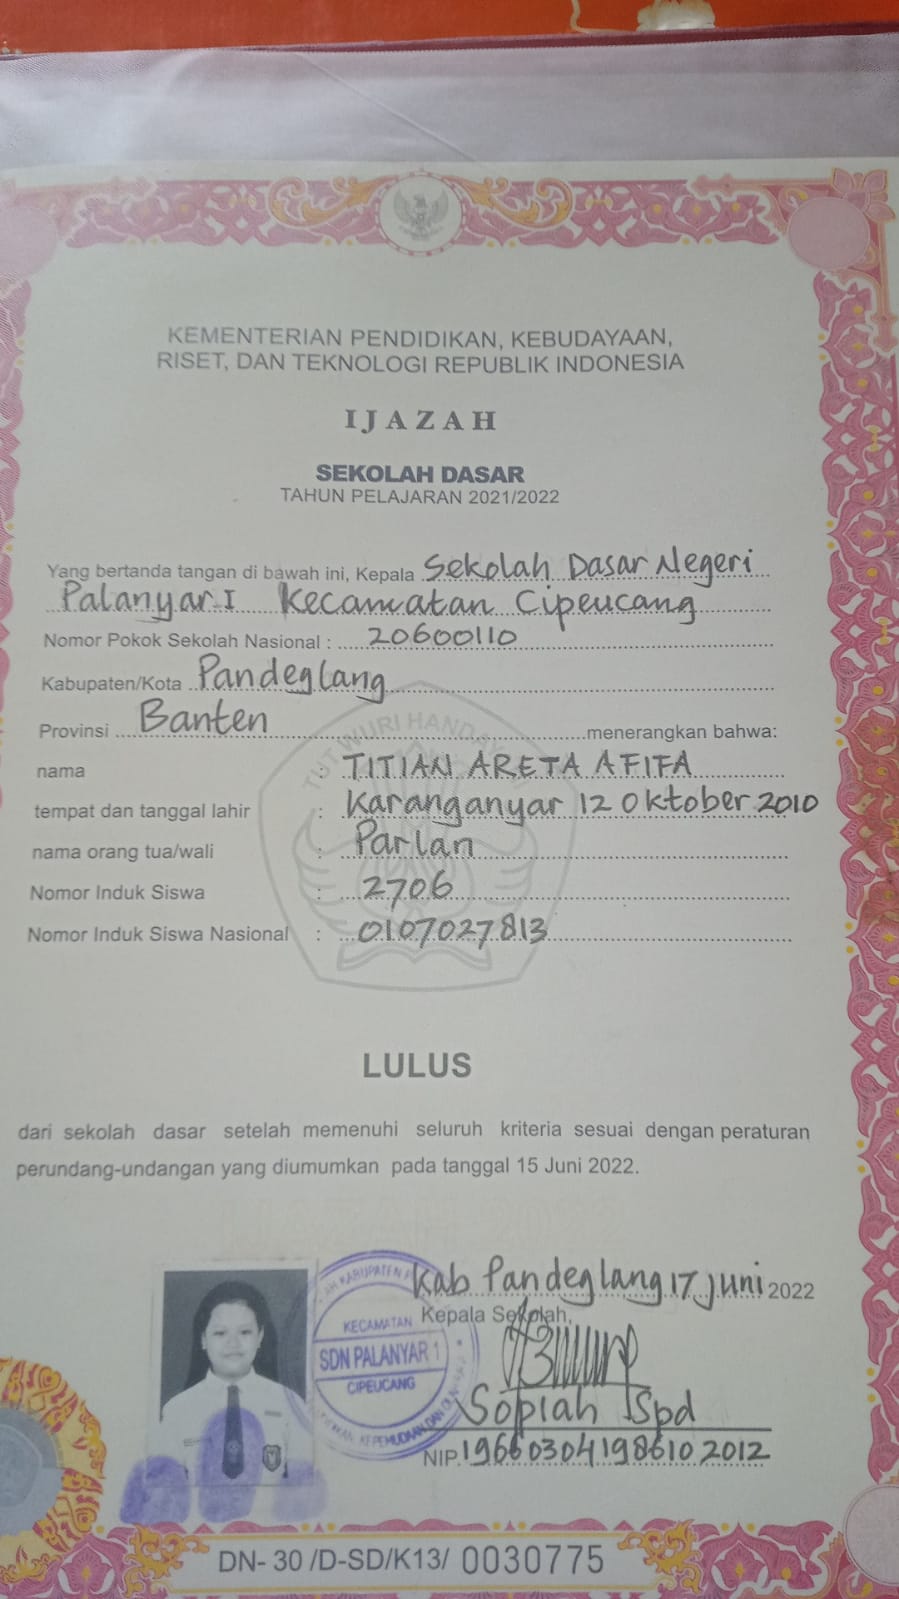 KEMENTERIAN PENDIDIKAN, KEBUDAYAAN,
RISET, DAN TEKNOLOGI REPUBLIK INDONESIA
IJAZAH
SEKOLAH DASAR
TAHUN PELAJARAN 2021/2022
Yang bertanda tangan di bawah ini, Kepala Sekolah Dasar Negeri
Palanyar I Kecamatan Cipeucang
Nomor Pokok Sekolah Nasional : 20600110
Kabupaten/Kota Pandeglang
Provinsi Banten menerangkan bahwa:
TUT WURI HANDAYANI
nama : TITIAN ARETA AFIFA
tempat dan tanggal lahir : Karanganyar 12 Oktober 2010
nama orang tua/wali : Parlan
Nomor Induk Siswa : 2706
Nomor Induk Siswa Nasional : 0107027813
LULUS
dari sekolah dasar setelah memenuhi seluruh kriteria sesuai dengan peraturan
perundang-undangan yang diumumkan pada tanggal 15 Juni 2022.
Kab Pandeglang 17 Juni 2022
Kepala Sekolah,
KECAMATAN
SDN PALANYAR 1
CIPEUCANG
Sopiah Spd
NIP. 19660304 198610 2012
DN- 30 /D-SD/K13/ 0030775